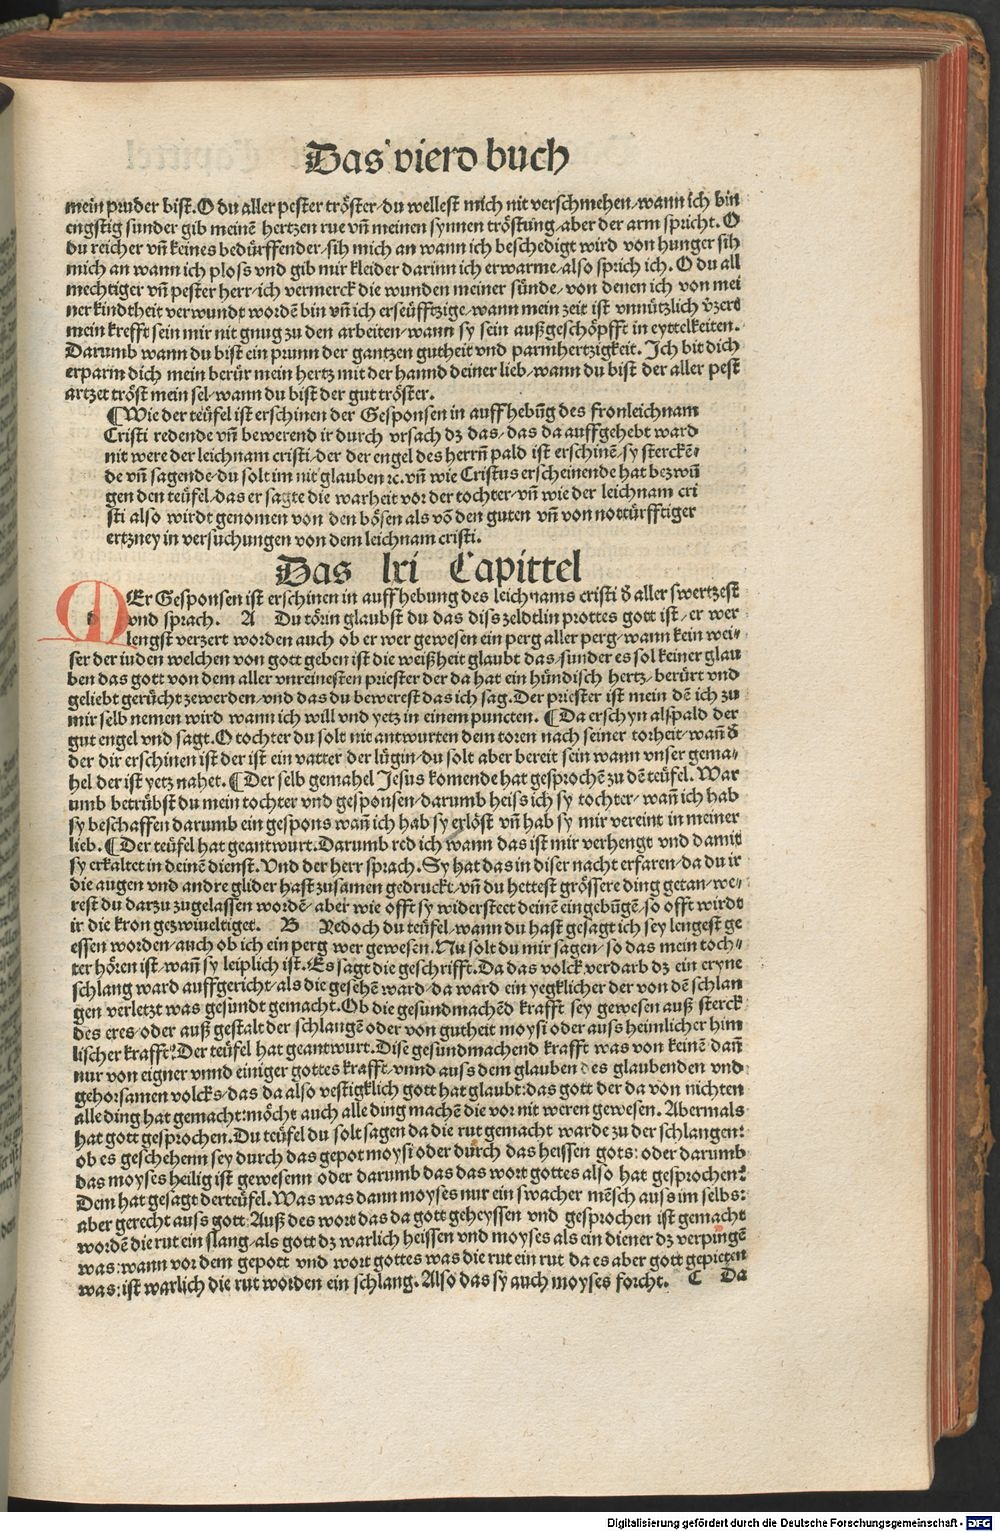 Das vierd buch
mein pruder bist. O du aller pester tröster/du wellest mich nit verschmehen/wann ich bin
engstig sunder gib meinē hertzen rue vn̄ meinen synnen tröstung/aber der arm spricht. O
du reicher vn̄ keines bedürffender/sih mich an wann ich beschedigt wird von hunger sih
mich an wann ich ploss vnd gib mir kleider darinn ich erwarme/also sprich ich. O du all
mechtiger vn̄ pester herr/ich vermerck die wunden meiner sünde/von denen ich von mei
ner kindtheit verwundt wordē bin vn̄ ich erseüfftzige/wann mein zeit ist vnnützlich v̈zert
mein krefft sein mir nit gnug zu den arbeiten/wann sy sein außgeschöpfft in eyttelkeiten.
Darumb wann du bist ein prunn der gantzen gutheit vnd parmhertzigkeit. Ich bit dich
erparm dich mein berür mein hertz mit der hannd deiner lieb/wann du bist der aller pest
artzet tröst mein sel/wann du bist der gut tröster.
¶ Wie der teüfel ist erschinen der Gesponsen in auffhebūg des fronleichnam
Cristi redende vn̄ bewerend ir durch vrsach dz das/das da auffgehebt ward
nit were der leichnam cristi/der der engel des herrn̄ pald ist erschinē/sy sterckē/
de vn̄ sagende/du solt im nit glauben ꝛc. vn̄ wie Cristus erscheinende hat bezwū
gen den teüfel/das er sagte die warheit vor der tochter/vn̄ wie der leichnam cri
sti also wirdt genomen von den bösen als vō den guten vn̄ von nottürfftiger
ertzney in versuchungen von dem leichnam cristi.
Das lxi Capittel
DEr Gesponsen ist erschinen in auffhebung des leichnams cristi d̄ aller swertzest
vnd sprach. A Du törin glaubst du das diss zeldtlin prottes gott ist/er wer
lengst verzert worden auch ob er wer gewesen ein perg aller perg/wann kein wei/
ser der iuden welchen von gott geben ist die weißheit glaubt das/sunder es sol keiner glau
ben das gott von dem aller vnreinesten priester der da hat ein hündisch hertz/berürt vnd
geliebt gerücht zewerden/vnd das du bewerest das ich sag. Der priester ist mein dē ich zu
mir selb nemen wird wann ich will vnd yetz in einem puncten. ¶ Da erschyn alspald der
gut engel vnd sagt. O tochter du solt nit antwurten dem toren nach seiner torheit/wan̄ d̄
der dir erschinen ist der ist ein vatter der lügin/du solt aber bereit sein wann vnser gema/
hel der ist yetz nahet. ¶ Der selb gemahel Jesus komende hat gesprochē zu dē teüfel. War
umb betrübst du mein tochter vnd gesponsen/darumb heiss ich sy tochter/wan̄ ich hab
sy beschaffen darumb ein gespons wan̄ ich hab sy erlöst vn̄ hab sy mir vereint in meiner
lieb. ¶ Der teüfel hat geantwurt. Darumb red ich wann das ist mir verhengt vnd damit
sy erkaltet in deinē dienst. Vnd der herr sprach. Sy hat das in diser nacht erfaren/da du ir
die augen vnd andre glider hast zusamen gedruckt/vn̄ du hettest grössere ding getan/we/
rest du darzu zugelassen wordē/aber wie offt sy widersteet deinē eingebūgē/so offt wirdt
ir die kron gezwiueltiget. B Yedoch du teüfel/wann du hast gesagt ich sey lengest ge
essen worden/auch ob ich ein perg wer gewesen. Nu solt du mir sagen/so das mein toch/
ter hören ist/wan̄ sy leiplich ist. Es sagt die geschrifft. Da das volck verdarb dz ein eryne
schlang ward auffgericht/als die gesehē ward/da ward ein yegklicher der von dē schlan
gen verletzt was gesundt gemacht. Ob die gesundmachēd krafft sey gewesen auß sterck
des eres/oder auß gestalt der schlangē oder von gutheit moysi oder auss heimlicher him
lischer krafft? Der teüfel hat geantwurt. Dise gesundmachend krafft was von keinē dan̄
nur von eigner vnnd einiger gottes krafft/vnnd auss dem glauben des glaubenden vnd
gehorsamen volcks/das da also vestigklich gott hat glaubt: das gott der da von nichten
alle ding hat gemacht: möcht auch alle ding machē die vor nit weren gewesen. Abermals
hat gott gesprochen. Du teüfel du solt sagen da die rut gemacht warde zu der schlangen:
ob es geschehenn sey durch das gepot moysi oder durch das heissen gots: oder darumb
das moyses heilig ist gewesenn oder darumb das das wort gottes also hat gesprochen?
Dem hat gesagt der teüfel. Was was dann moyses nur ein swacher mēsch auss im selbs:
aber gerecht auss gott: Auß des wort das da gott geheyssen vnd gesprochen ist gemacht
wordē die rut ein slang/als gott dz warlich heissen vnd moyses als ein diener dz verpingē
was: wann vor dem gepott vnd wort gottes was die rut ein rut da es aber gott gepieten
was: ist warlich die rut worden ein schlang. Also das sy auch moyses forcht. C Da
Digitalisierung gefördert durch die Deutsche Forschungsgemeinschaft - DFG